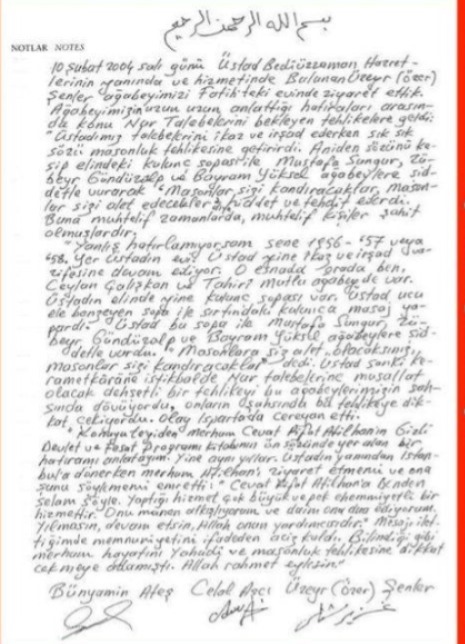 بسم الله الرحمن الرحيم
NOTLAR NOTES
10 Şubat 2004 salı günü Üstad Bediüzzaman Hazret-
lerinin yanında ve hizmetinde Bulunan Üzeyr (özer)
Şenler ağabeyimizi Fatih'teki evinde ziyaret ettik.
Ağabeyimizin uzun uzun anlattığı hatıraları arasın-
da konu Nur Talebelerini bekleyen tehlikelere geldi:
"Üstadımız talebelerini ikaz ve irşad ederken sık sık
sözü masonluk tehlikesine getirirdi. Aniden sözünü ke-
sip elindeki kulunc sopası ile Mustafa Sungur, Zü-
beyr Gündüzalp ve Bayram Yüksel ağabeylere şid-
detle vurarak "Masonlar sizi kandıracaklar, mason-
lar sizi alet edecekler" diye hiddet ve tehdit ederdi.
Buna muhtelif zamanlarda, muhtelif kişiler şahit
olmuşlardır.
"Yanlış hatırlamıyorsam sene 1956-'57 veya
'58. Yer Üstadın evi. Üstad yine ikaz ve irşad va-
zifesine devam ediyor. O esnada orada ben,
Ceylan Çalışkan ve Tahiri Mutlu ağabey de var.
Üstadın elinde yine kulunc sopası var. Üstad ucu
ele benzeyen sopa ile sırtındaki kulunca masaj ya-
pardı. Üstad bu sopa ile Mustafa Sungur, Zü-
beyr Gündüzalp ve Bayram Yüksel ağabeylere şid-
detle vurdu. "Masonlara siz alet olacaksınız,
masonlar sizi kandıracaklar" dedi. Üstad sanki ke-
rametkârâne istikbalde Nur talebelerine musallat
olacak dehşetli bir tehlikeyi bu ağabeylerimizin şah-
sında dövüyordu, onların şahsında bu tehlikeye dik-
kat çekiyordu. Olay Ispartada cereyan etti.
merhum Cevat Rıfat Atilhan'ın Gizli
Devlet ve Fesat Programı kitabının ön sözünde yer alan bir
hatıramı anlatayım. Yine aynı yıllar. Üstadın yanından İstan-
bul'a dönerken merhum Atilhan'ı ziyaret etmemi ve ona
şunu söylememi emretti: "Cevat Rıfat Atilhan'a benden
selam söyle. Yaptığı hizmet çok büyük ve pek ehemmiyetli bir
hizmettir. Onu manen alkışlıyorum ve daim ona dua ediyorum.
Yılmasın, devam etsin, Allah onun yardımcısıdır." Mesajı ilet-
tiğimde memnuniyetini ifadeden aciz kaldı. Bilindiği gibi
merhum hayatını Yahudi ve masonluk tehlikesine dikkat
çekmeye adamıştı. Allah rahmet eylesin."
Bünyamin Ateş Celal Üzeyr (özer) Şenler